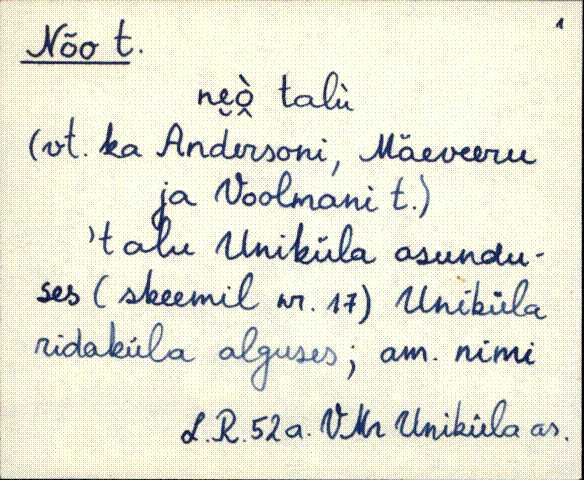 1
Nõo t.
ne̮ò̭ talù
(vt. ka Andersoni, Mäeveeru
ja Voolmani t.)
'talu Uniküla asundu-
ses (skeemil nr. 17) Uniküla
ridaküla alguses; am. nimi
L.R. 52a. VMr Uniküla as.